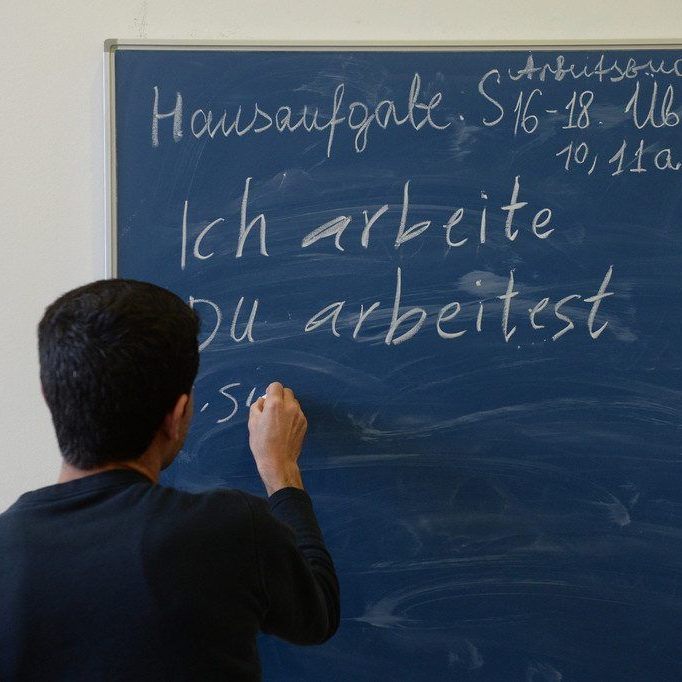 Arbeitsbuc
Hausaufgabe. S 16-18. Üb
10, 11a
Ich arbeite
Du arbeitest